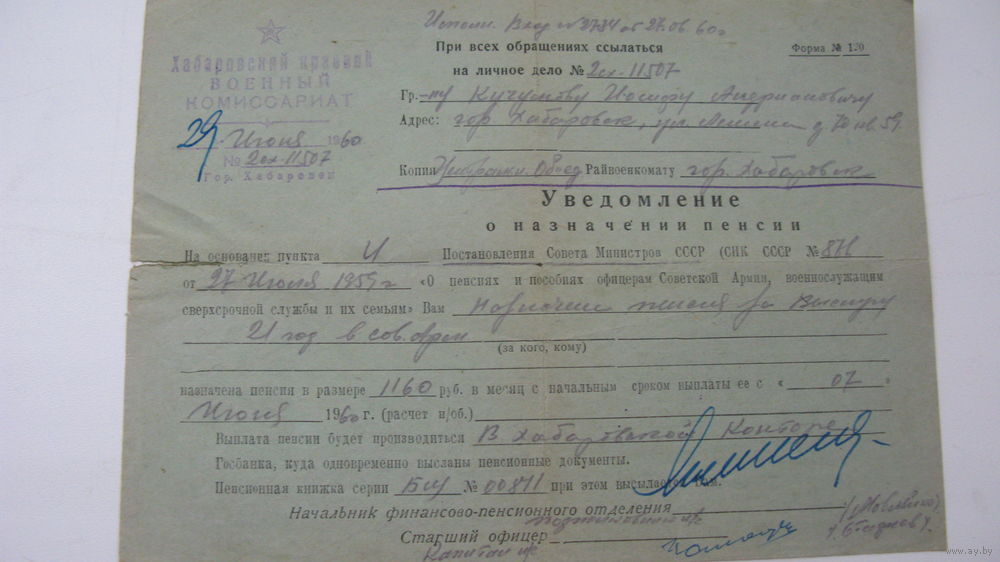 Исполн. Вход № 2784 от 27.06.60г
Хабаровский краевой
ВОЕННЫЙ
КОМИССАРИАТ
29 Июня 1960
№ 2сх-11507
Гор. Хабаровск
При всех обращениях ссылаться
Форма № 120
на личное дело № 2сх-11507
Гр.-ну Иосифу Андриановичу
Адрес: гор. Хабаровск, ул. Ленина д 70 кв. 59
Копия Райвоенкомату гор. Хабаровск
Уведомление
о назначении пенсии
На основании пункта И Постановления Совета Министров СССР (СНК СССР № 876
от 27 Июля 1959 г «О пенсиях и пособиях офицерам Советской Армии, военнослужащим
сверхсрочной службы и их семьям» Вам Назначена пенсия за Выслугу
21 год в сов. арм
(за кого, кому)
назначена пенсия в размере 1160 руб. в месяц с начальным сроком выплаты ее с « 07 »
Июня 1960 г. (расчет н/об.)
Выплата пенсии будет производиться В Хабаровской Конторе
Госбанка, куда одновременно высланы пенсионные документы.
Пенсионная книжка серии БЩ № 00811 при этом высылается Вам.
Начальник финансово-пенсионного отделения
подполковник
Старший офицер
Капитан
www.ay.by